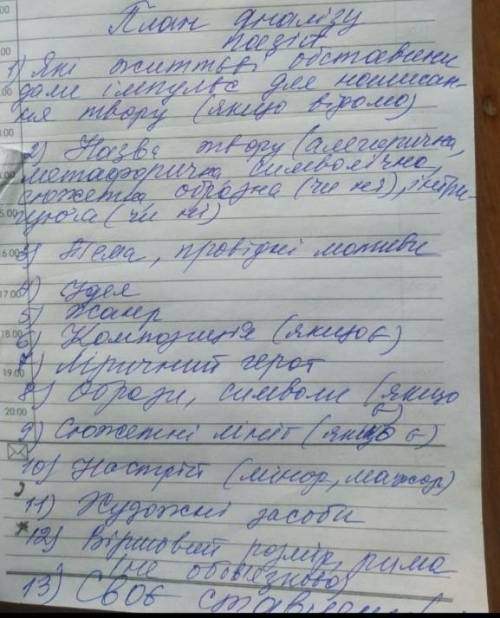 План аналізу
поезії
1) Які життєві обставини
дали імпульс для написан-
ня твору (якщо відомо)
2) Назва твору (алегорична,
метафорична, символічна,
сюжетна, образна (чи ні), інтри-
гуюча (чи ні)
3) Тема, провідні мотиви
16.00
4) Ідея
17.00
5) Жанр
6) Композиція (якщо є)
18.00
7) Ліричний герой
19.00
8) Образи, символи (якщо
є)
20.00
9) Сюжетні лінії (якщо є)
10) Настрій (мінор, мажор)
11) Художні засоби
12) Віршовий розмір, рима
(не обов'язково)
13) Своє